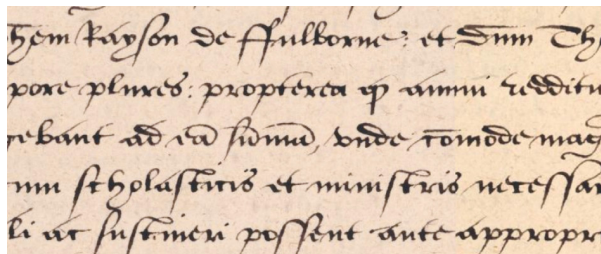 hem Rayson de ffulborne: et dnm Th
pore plures: propterea qp annui redditu
gebant ad eā sūmā, vnde cōmode mag
cum scholasticis et ministris necessar
li ac sustineri possent ante appropr